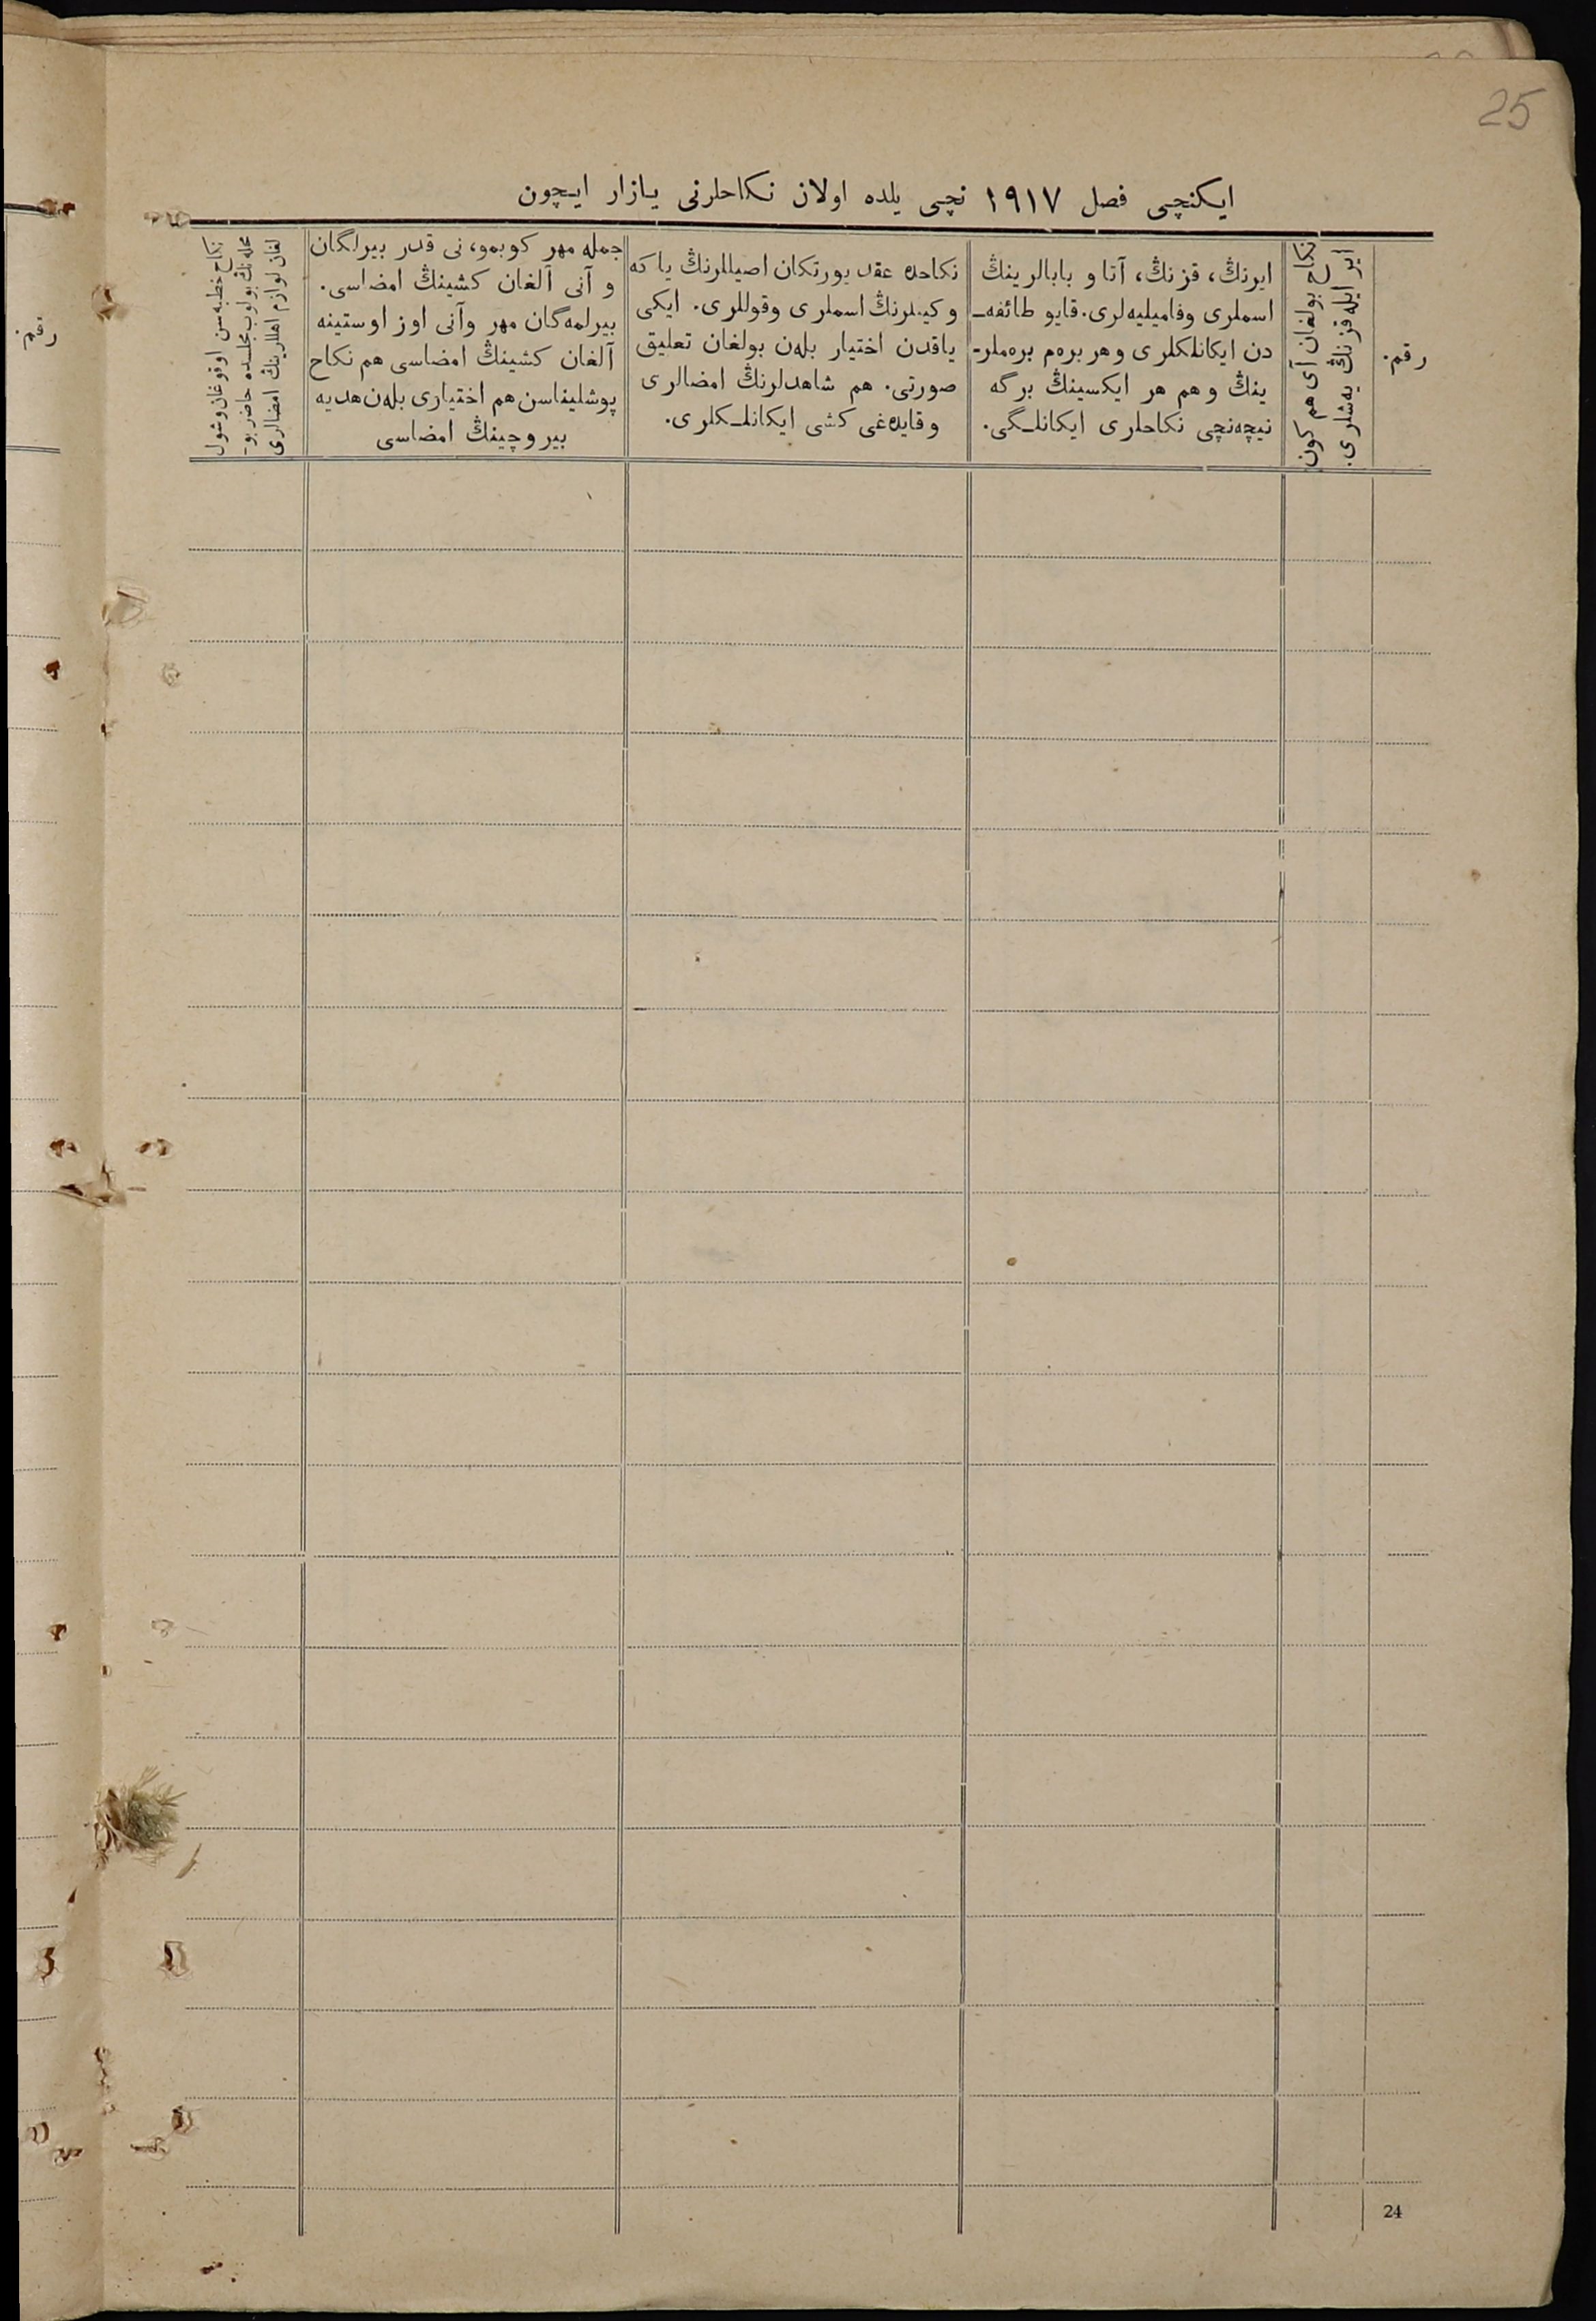 25
ایکنچی فصل ١٩١٧ نچی یلده اولان نکاحلرنی یازار ایچون
رقم.
نکاح بولغان آی هم کون
ایر ایله قزنڭ یه‌شلری.
ایرنڭ، قزنڭ، آتا و بابالرینڭ
اسملری وفامیلیه‌لری. قایو طائفه‌ـ
دن ایکانلکلری وهر بره‌م بره‌ملرـ
ینڭ وهم هر ایکسینڭ برگه
نیچه‌نچی نکاحلری ایکانلـگی.
نکاحده عقد یورتکان اصیللرنڭ یا که
وکیـلرنڭ اسملری وقوللری. ایکی
یاقدن اختیار بله‌ن بولغان تعلیق
صورتی. هم شاهدلرنڭ امضالری
وقایده‌غی کشی ایکانلـکلری.
جمله مهر کوبمو، نی قدر بیرلگان
و آنی آلغان کشینڭ امضاسی.
بیرلمه‌گان مهر وآنی اوز اوستینه
آلغان کشینڭ امضاسی هم نکاح
پوشلیناسن هم اختیاری بله‌ن هدیه
بیروچینڭ امضاسی
نکاح خطبه‌سن اوقوغان وشول
محله‌نڭ بولوب مجلسده حاضر بوـ
لغان لوازم اهللرینڭ امضالری
رقم.
24